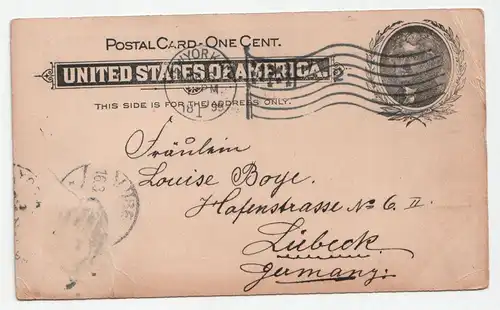 POSTAL CARD - ONE CENT.
UNITED STATES OF AMERICA.
THIS SIDE IS FOR THE ADDRESS ONLY.
Fräulein
Louise Boye.
Hafenstrasse No 6 II
Lübeck
Germany.